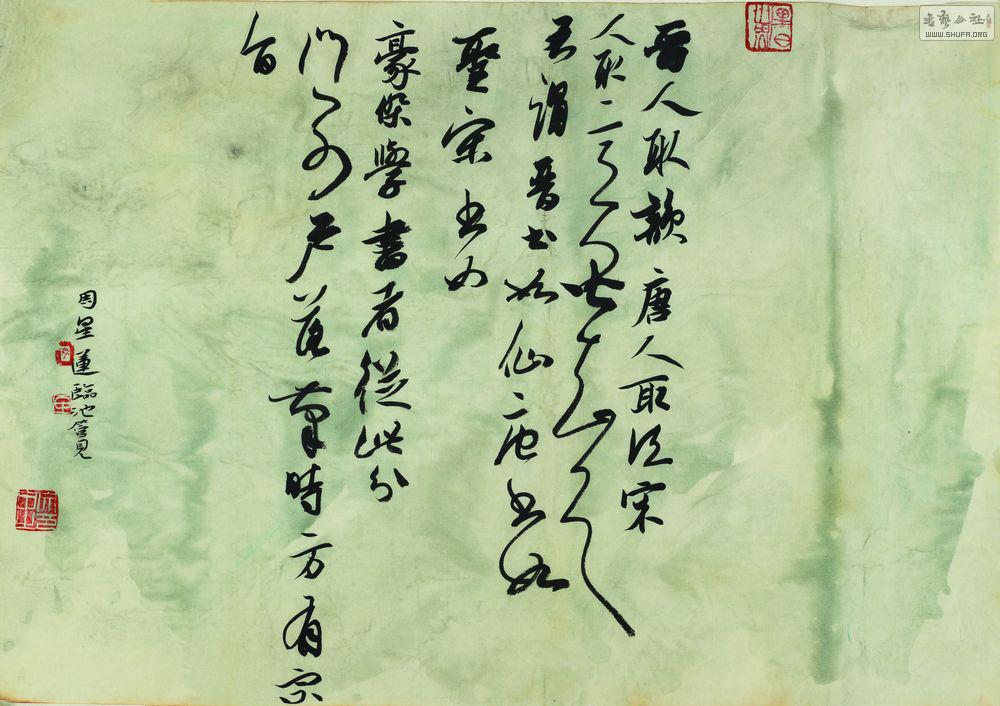 晉人取韻唐人取法宋
人取
吾謂晉書如仙唐書如
聖宋書如
豪傑學書者從此分
門別戶落筆時方有宗
旨
周星蓮臨池管見
书艺公社
WWW.SHUFA.ORG